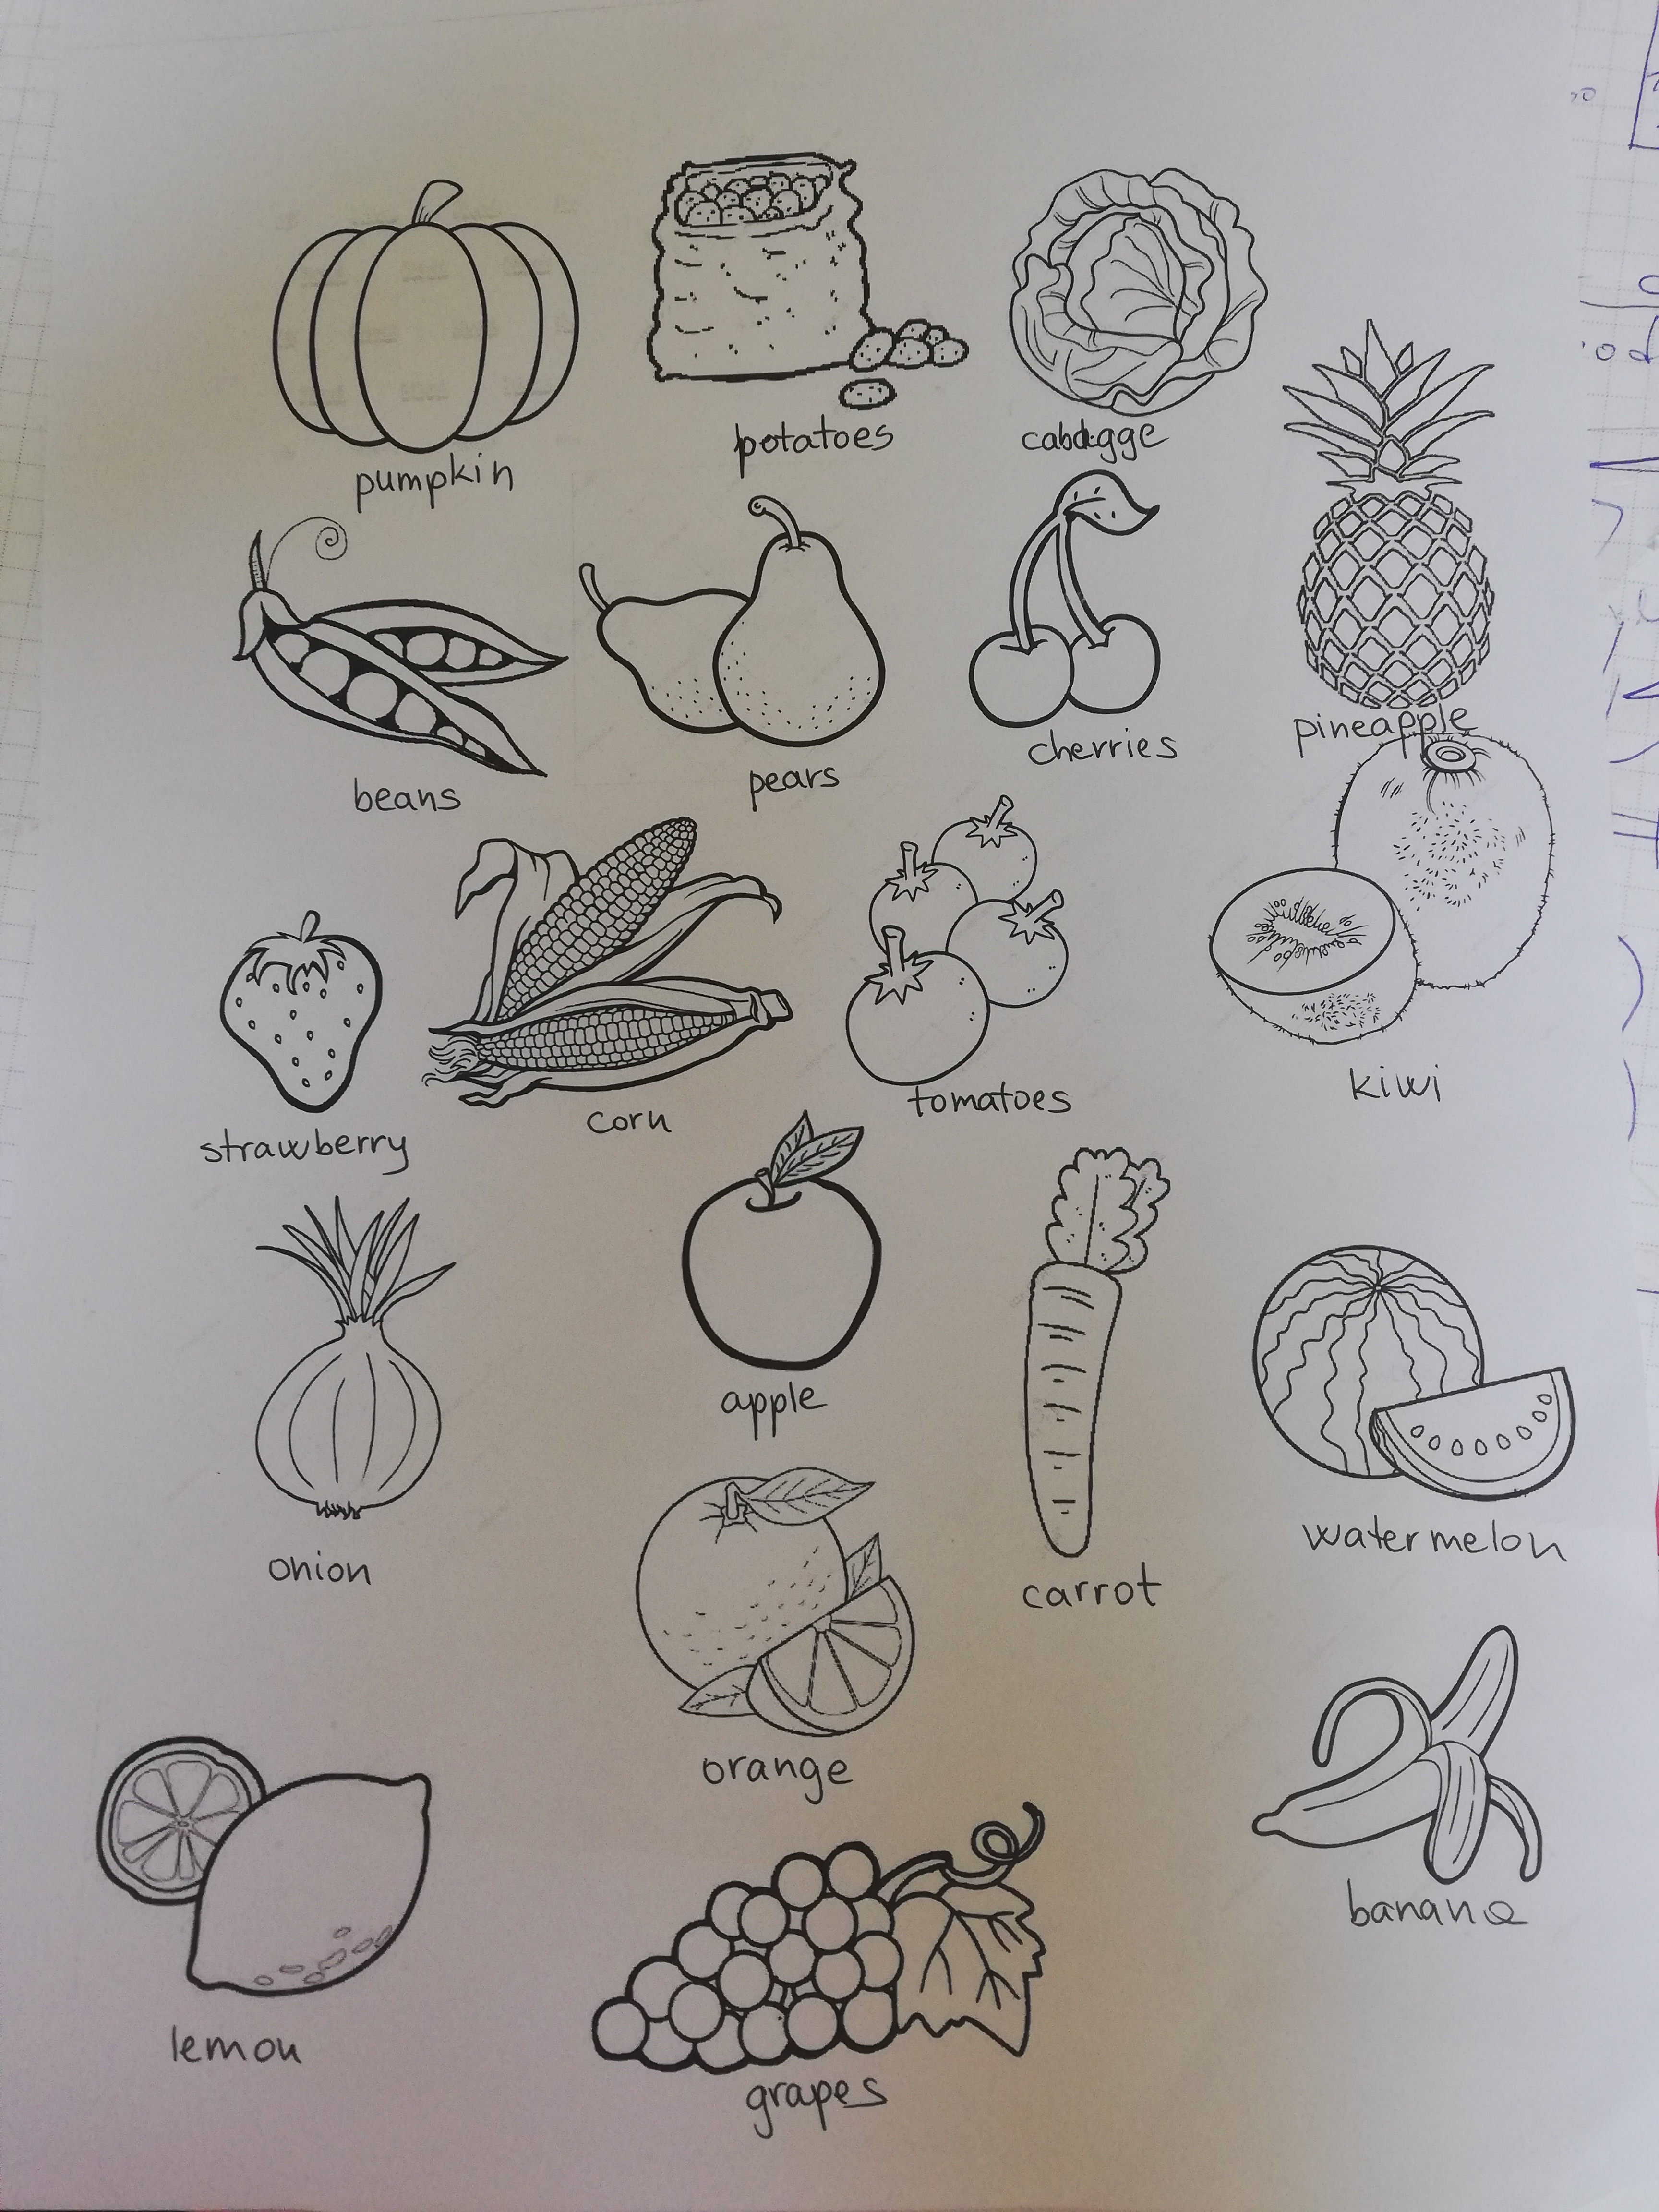 potatoes
cabdegge
pumpkin
pineapple
cherries
pears
beans
kiwi
tomatoes
corn
strawberry
apple
watermelon
onion
carrot
orange
banana
lemon
grapes